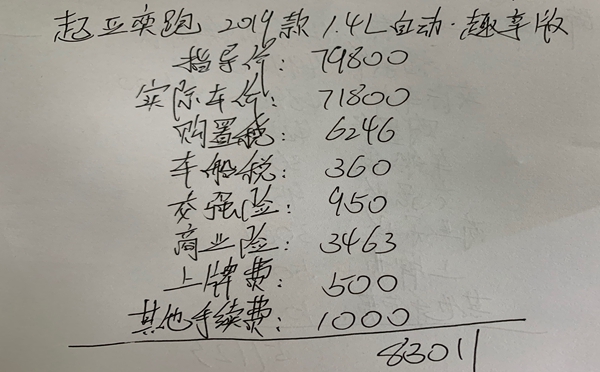 起亚奕跑 2019款 1.4L自动·趣享版
指导价: 79800
实际车价: 71800
购置税: 6246
车船税: 360
交强险: 950
商业险: 3463
上牌费: 500
其他手续费: 1000
83011